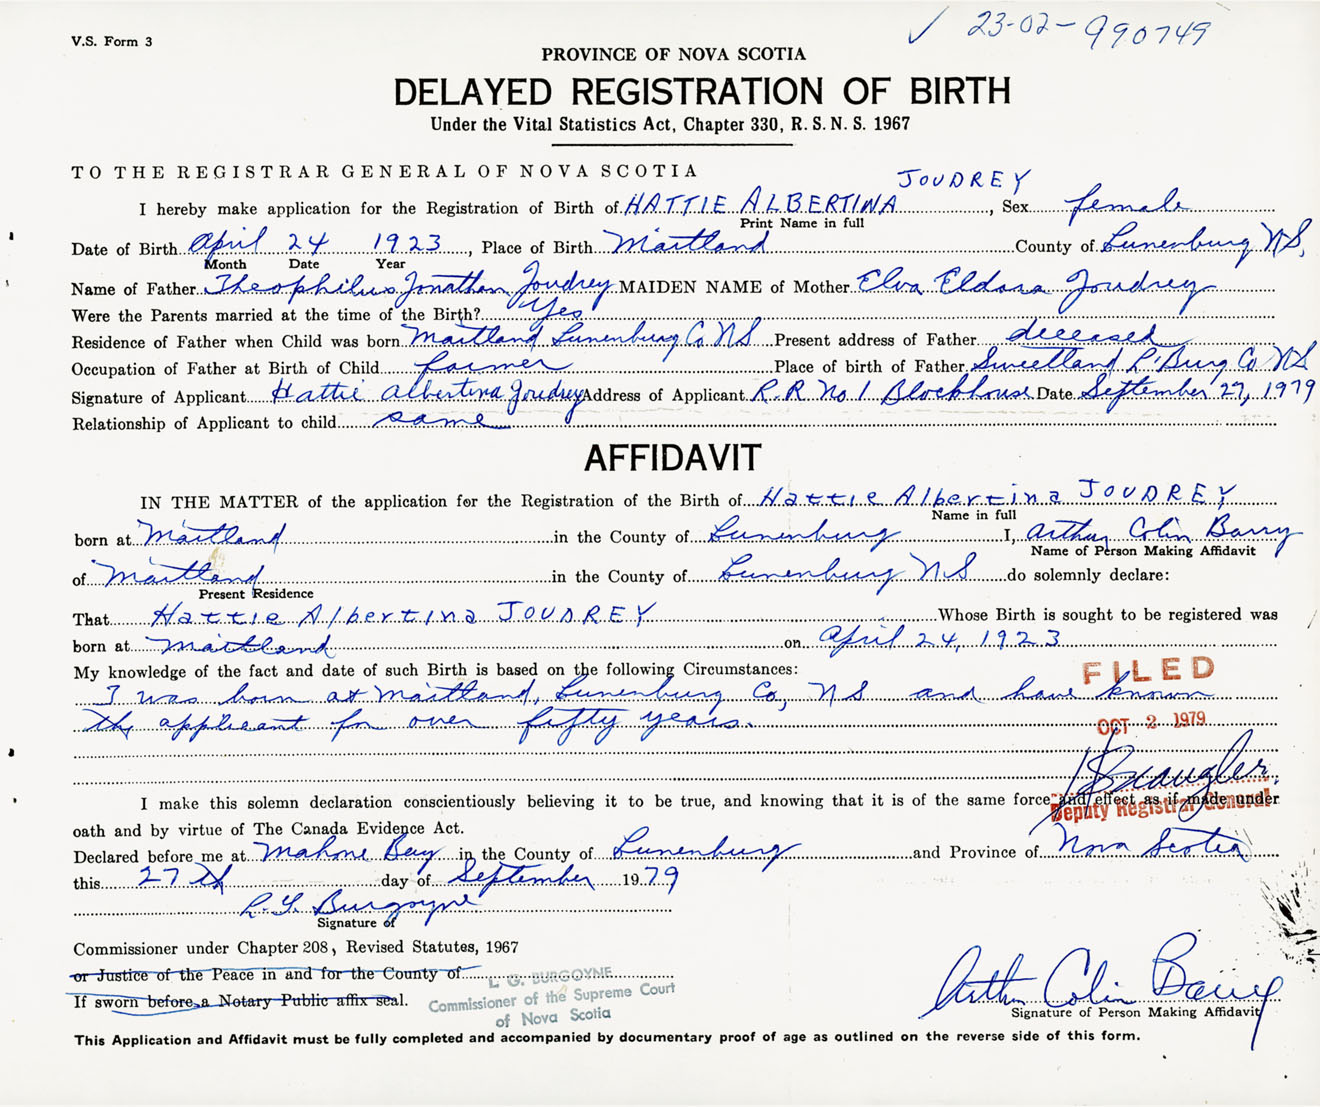 ✓ 23-02-990749
V.S. Form 3
PROVINCE OF NOVA SCOTIA
DELAYED REGISTRATION OF BIRTH
Under the Vital Statistics Act, Chapter 330, R. S. N. S. 1967
TO THE REGISTRAR GENERAL OF NOVA SCOTIA
I hereby make application for the Registration of Birth of HATTIE ALBERTINA JOUDREY, Sex female
Print Name in full
Date of Birth April 24 1923, Place of Birth Maitland County of Lunenburg NS,
Month Date Year
Name of Father Theophilus Jonathan Joudrey MAIDEN NAME of Mother Elva Eldora Joudrey
Were the Parents married at the time of the Birth? Yes
Residence of Father when Child was born Maitland Lunenburg Co NS Present address of Father deceased
Occupation of Father at Birth of Child farmer Place of birth of Father Sweetland L'Burg Co NS
Signature of Applicant Hattie Albertina Joudrey Address of Applicant R.R No. 1 Blockhouse Date September 27, 1979
Relationship of Applicant to child same
AFFIDAVIT
IN THE MATTER of the application for the Registration of the Birth of Hattie Albertina JOUDREY
Name in full
born at Maitland in the County of Lunenburg I, Arthur Colin Barry
Name of Person Making Affidavit
of Maitland in the County of Lunenburg NS do solemnly declare:
Present Residence
That Hattie Albertina JOUDREY Whose Birth is sought to be registered was
born at Maitland on April 24, 1923
My knowledge of the fact and date of such Birth is based on the following Circumstances:
FILED
I was born at Maitland, Lunenburg Co, NS and have known
the applicant for over fifty years.
OCT 2 1979
Deputy Registrar General
I make this solemn declaration conscientiously believing it to be true, and knowing that it is of the same force and effect as if made under
oath and by virtue of The Canada Evidence Act.
Declared before me at Mahone Bay in the County of Lunenburg and Province of Nova Scotia
this 27th day of September 1979
L. G. Burgoyne
Signature of
Commissioner under Chapter 208, Revised Statutes, 1967
or Justice of the Peace in and for the County of
If sworn before a Notary Public affix seal.
L. G. BURGOYNE
Commissioner of the Supreme Court
of Nova Scotia
Arthur Colin Barry
Signature of Person Making Affidavit
This Application and Affidavit must be fully completed and accompanied by documentary proof of age as outlined on the reverse side of this form.